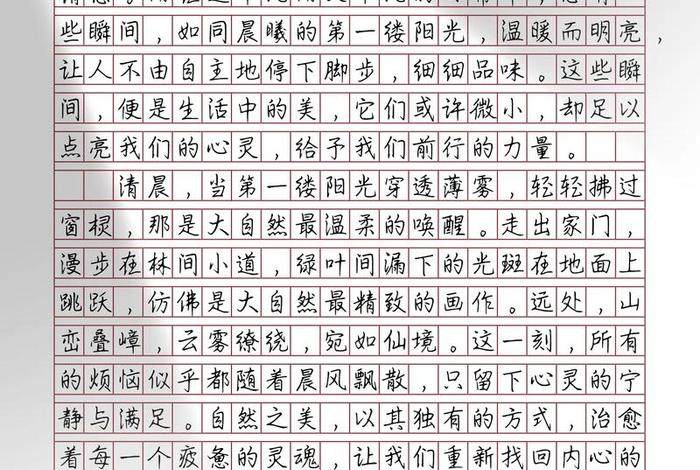 些瞬间，如同晨曦的第一缕阳光，温暖而明亮，
让人不由自主地停下脚步，细细品味。这些瞬
间，便是生活中的美，它们或许微小，却足以
点亮我们的心灵，给予我们前行的力量。
清晨，当第一缕阳光穿透薄雾，轻轻拂过
窗棂，那是大自然最温柔的唤醒。走出家门，
漫步在林间小道，绿叶间漏下的光斑在地面上
跳跃，仿佛是大自然最精致的画作。远处，山
峦叠嶂，云雾缭绕，宛如仙境。这一刻，所有
的烦恼似乎都随着晨风飘散，只留下心灵的宁
静与满足。自然之美，以其独有的方式，治愈
着每一个疲惫的灵魂，让我们重新找回内心的